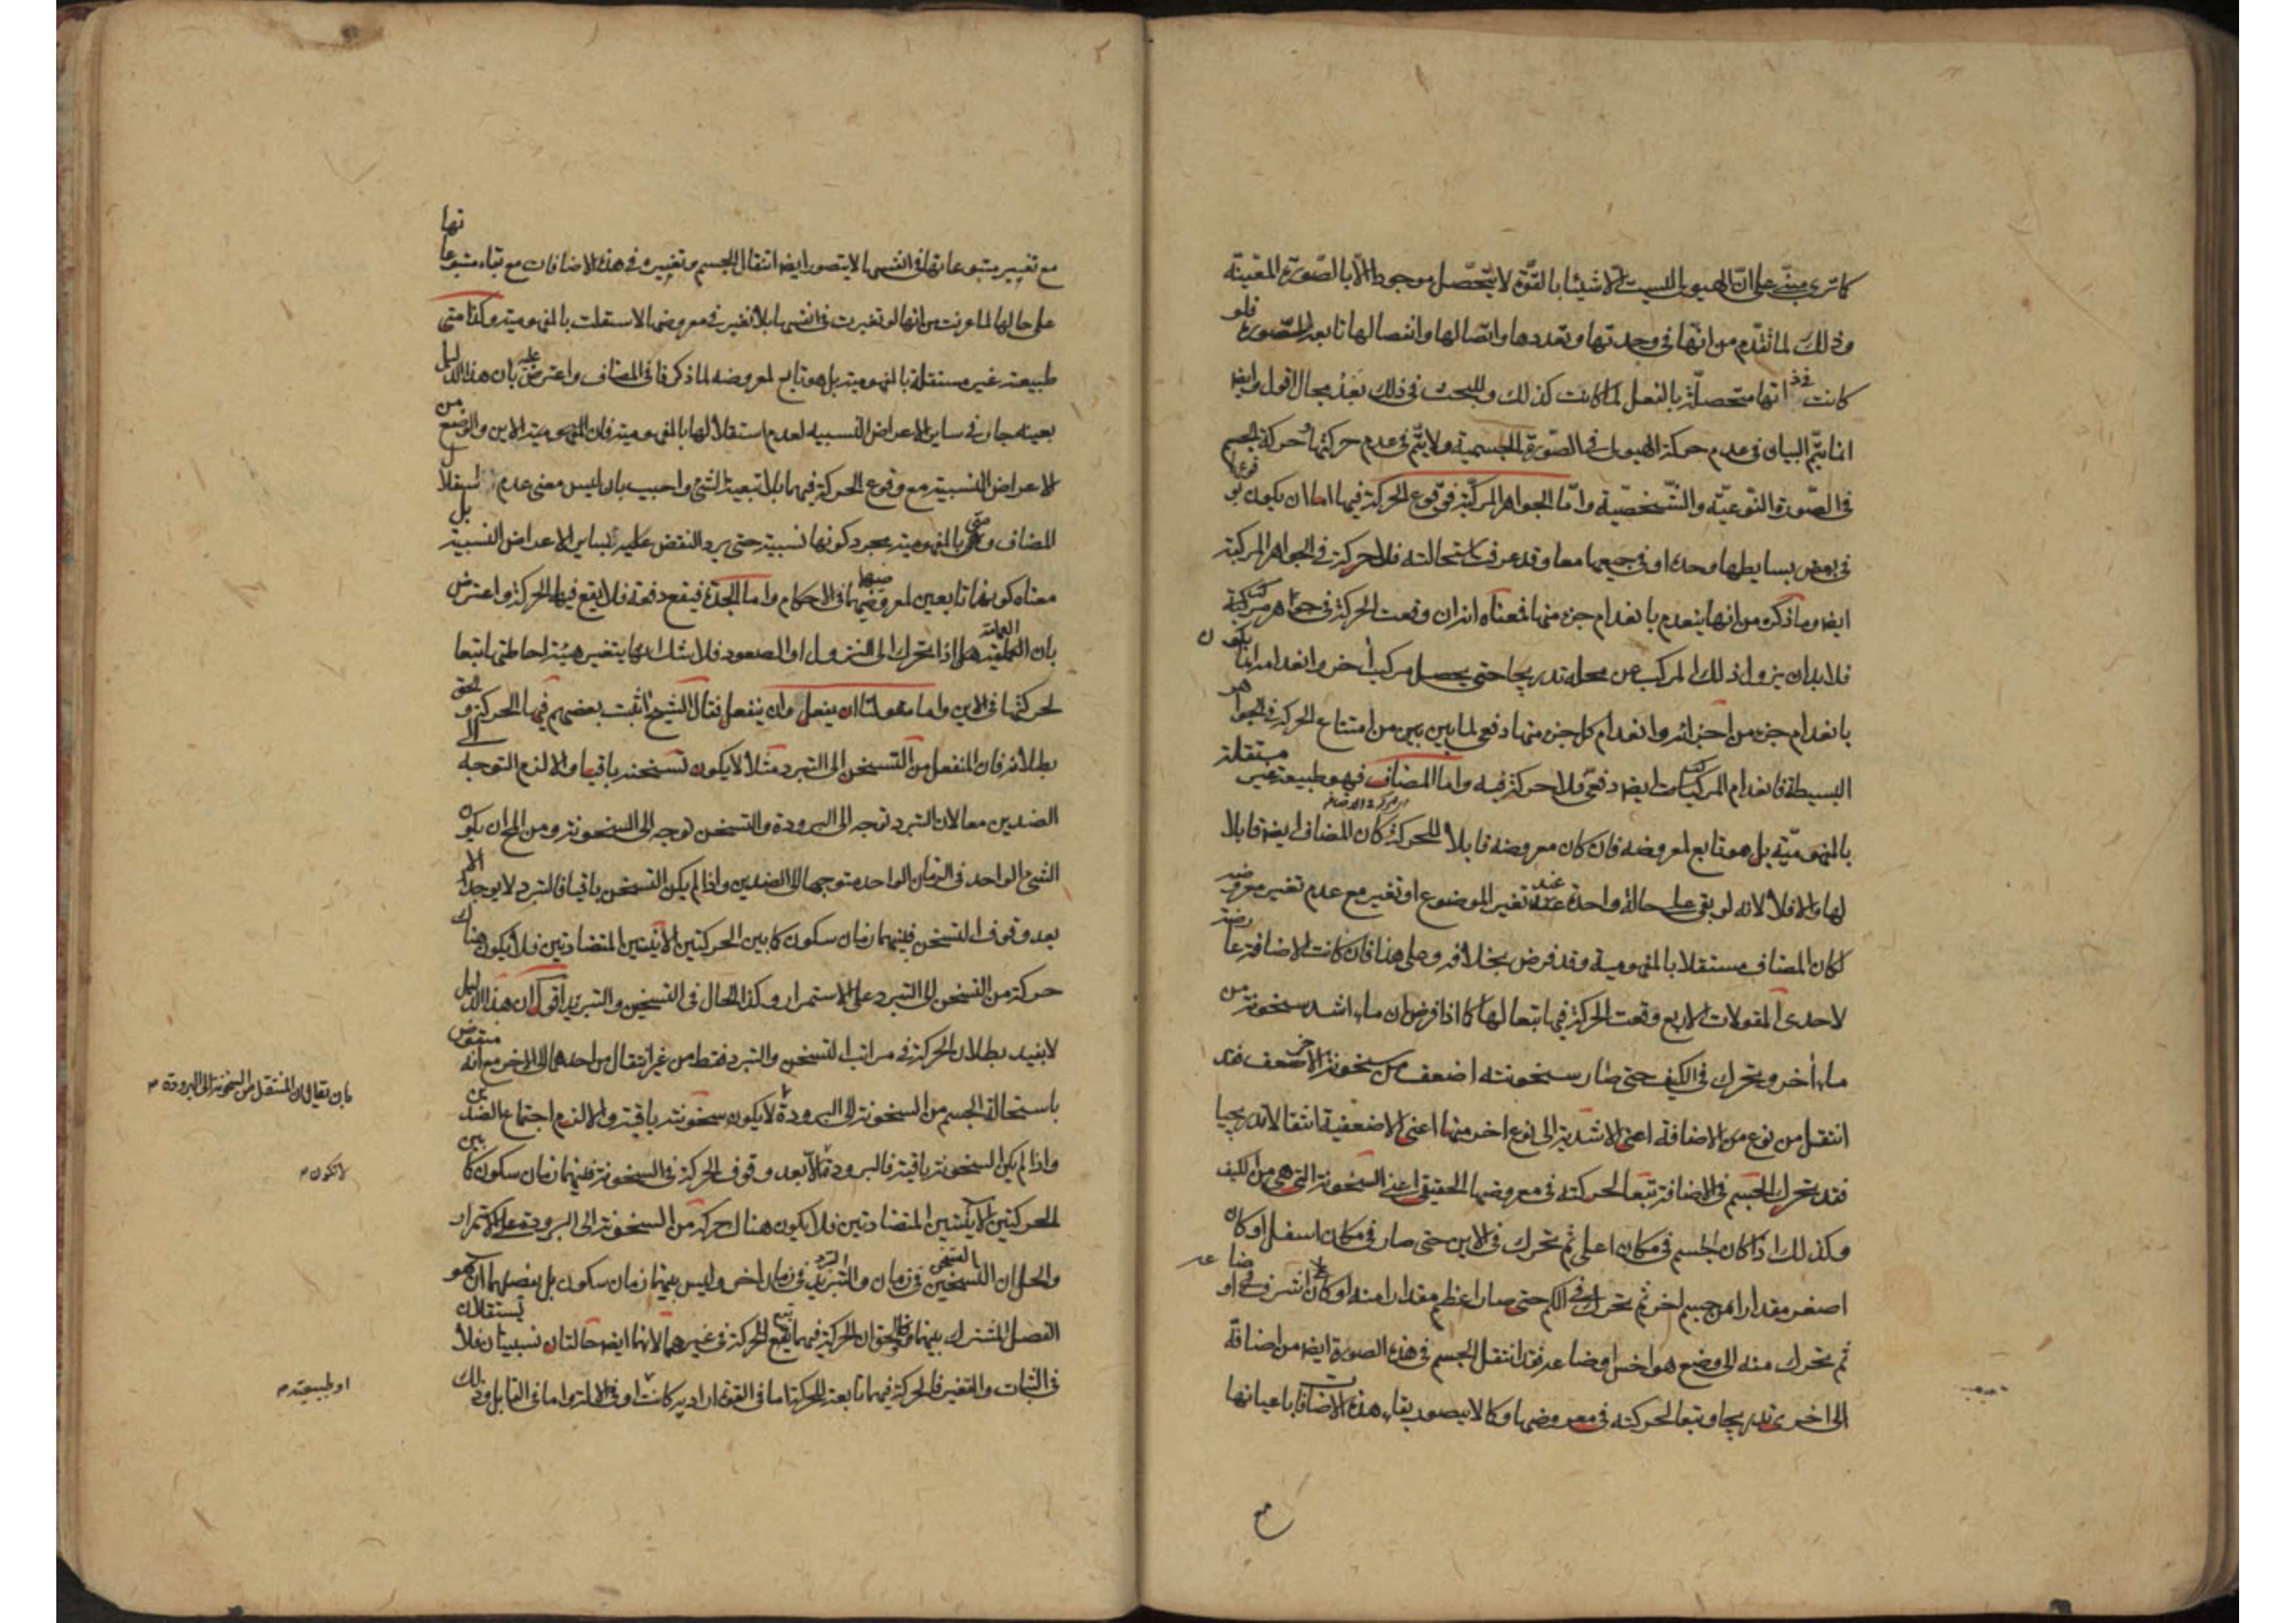 كما ترى مبنى على ان الهيولى ليست الا شيئا بالقوة لا يتحصل موجودا الا بالصورة المعينة
وذلك لما تقدم من انها في وحدتها وتعددها واتصالها وانفصالها تابعة للصورة فلو
كانت في ذاتها متحصلة بالفعل لما كانت كذلك وللبحث في ذلك بعد مجال اقول وايضا
انما يتم البيان في عدم حركة الهيولى في الصورة الجسمية ولا يتم في عدم حركتها وحركة الجسم
في الصورة النوعية والشخصية واما الجواهر المركبة فوقوع الحركة فيها اما ان يكون بوقوعها
في بعض بسايطها وحده او في جميعها معا وقد عرفت استحالته فلا حركة في الجواهر المركبة
ايضا وما ذكره من انها ينعدم بانعدام جزء منها فمعناه انه ان وقعت الحركة في جواهر مركبة
فلا بد ان يزول ذلك المركب عن محله تدريجا حتى يحصل مركب اخر وانعدامه انما يكون
بانعدام جزء من اجزائه وانعدام كل جزء منها دفعي لما بين من امتناع الحركة في الجواهر
البسيطة فانعدام المركبات ايضا دفعي فلا حركة فيه واما المضاف فهو طبيعة غير مستقلة
بالمفهومية بل هو تابع لمعروضه فان كان معروضه قابلا للحركة كان المضاف ايضا قابلا
لها والا فلا لانه لو بقى على حالة واحدة عند تغير الموضوع او تغير مع عدم تغير معروضه
لكان المضاف مستقلا بالمفهومية وقد فرض بخلافه وعلى هذا فان كانت الاضافة عارضة
لاحدى المقولات الاربع وقعت الحركة فيها تبعا لها كما اذا فرض ان ماء اشد سخونة من
ماء أخر وتحرك في الكيف حتى صار سخونته اضعف من سخونة الاخر فقد
انتقل من نوع من الاضافة اعنى الاشدية الى نوع اخر منها اعنى الاضعفية انتقالا تدريجيا
فقد تحرك الجسم في الاضافة تبعا لحركته في معروضها الحقيقى اعنى السخونة التي هي من الكيف
وكذلك اذا كان الجسم في مكان اعلى ثم تحرك في الاين حتى صار في مكان اسفل او كان
اصغر مقدارا من جسم اخر ثم تحرك في الكم حتى صار اعظم مقدارا منه او كان على اشرف اوضاعه
ثم تحرك منه الى وضع هو اخس اوضاعه فقد انتقل الجسم في هذه الصورة ايضا من اضافة
الى اخرى تدريجا وتبعا لحركته في معروضها وكما لا يتصور بقاء هذه الاضافات باعيانها
مع
مع تغيير متبوعاتها في انفسها لا يتصور ايضا انتقال الجسم وتغييره في هذه الاضافات مع بقاء متبوعاتها
على حالها لما عرفت من انها لو تغيرت في انفسها بلا تغير في معروضها لاستقلت بالمفهومية وكذا متى
طبيعته غير مستقلة بالمفهومية بل هو تابع لمعروضه لما ذكرنا في المضاف واعترض عليه بان هذا الدليل
بعينه جار في ساير الاعراض النسبيه لعدم استقلالها بالمفهومية فان المفهومية الاين والوضع من
الاعراض النسبية مع وقوع الحركة فيهما بلا تبعية لشئ واجيب بان ليس معنى عدم استقلال
المضاف ومتى بالمفهومية مجرد كونها نسبية حتى يرد النقض عليه بساير الاعراض النسبية بل
معناه كونهما تابعين لمعروضيهما في الاحكام واما الجدة فيقع دفعة فلا يقع فيها الحركة واعترض
بان العمامة مثلا اذا تحرك الى النزول او الصعود فلا شك انها يتغير هيئة احاطتها تبعا
لحركتها في الاين واما مقولتا ان يفعل وان ينفعل فقال الشيخ اثبت بعضهم فيها الحركة والحق
بطلانه فان المنفعل من التسخن الى التبرد مثلا لا يكون تسخنه باقيا والا لزم التوجه الى
الضدين معا لان التبرد توجه الى البرودة والتسخن توجه الى السخونة ومن المح ان يكون
الشئ الواحد في الزمان الواحد متوجها الى الضدين واذا لم يكن التسخن باقيا فالتبرد لا يوجد الا
بعد وقوف التسخن فبينهما زمان سكون كما بين الحركتين الاينيتين المتضادتين فلا يكون هناك
حركة من التسخن الى التبرد على الاستمرار وكذا الحال في التسخين والتبريد اقول ان هذا الدليل
لا يفيد بطلان الحركة في مراتب التسخن والتبرد فقط من غير انتقال من احدهما الى الاخر مع انه منقوض
باستحالة الجسم من السخونة الى البرودة لا يكون سخونته باقية والا لزم اجتماع الضدين
واذا لم يكن السخونة باقية فالبرودة الا بعد وقوف الحركة في السخونة فبينهما زمان سكون كما بين
الحركتين الاينيتين المتضادتين فلا يكون هناك حركة من السخونة الى البرودة على الاستمرار
والحل ان التسخن في زمان والتبرد في زمان اخر وليس بينهما زمان سكون بل يفصلهما ان هو
الفصل المشترك بينهما والحق ان الحركة فيهما تبع الحركة في غيرهما لانهما ايضا حالتان نسبيتان فلا يستقلان
في الثبات والتغير فالحركة فيهما تابعة للحركة اما في القوة ارادية كانت او في الالة واما في القابل وذلك
بان يقال ان المنتقل من السخونة الى البرودة م
لا تكون م
او طبيعته م